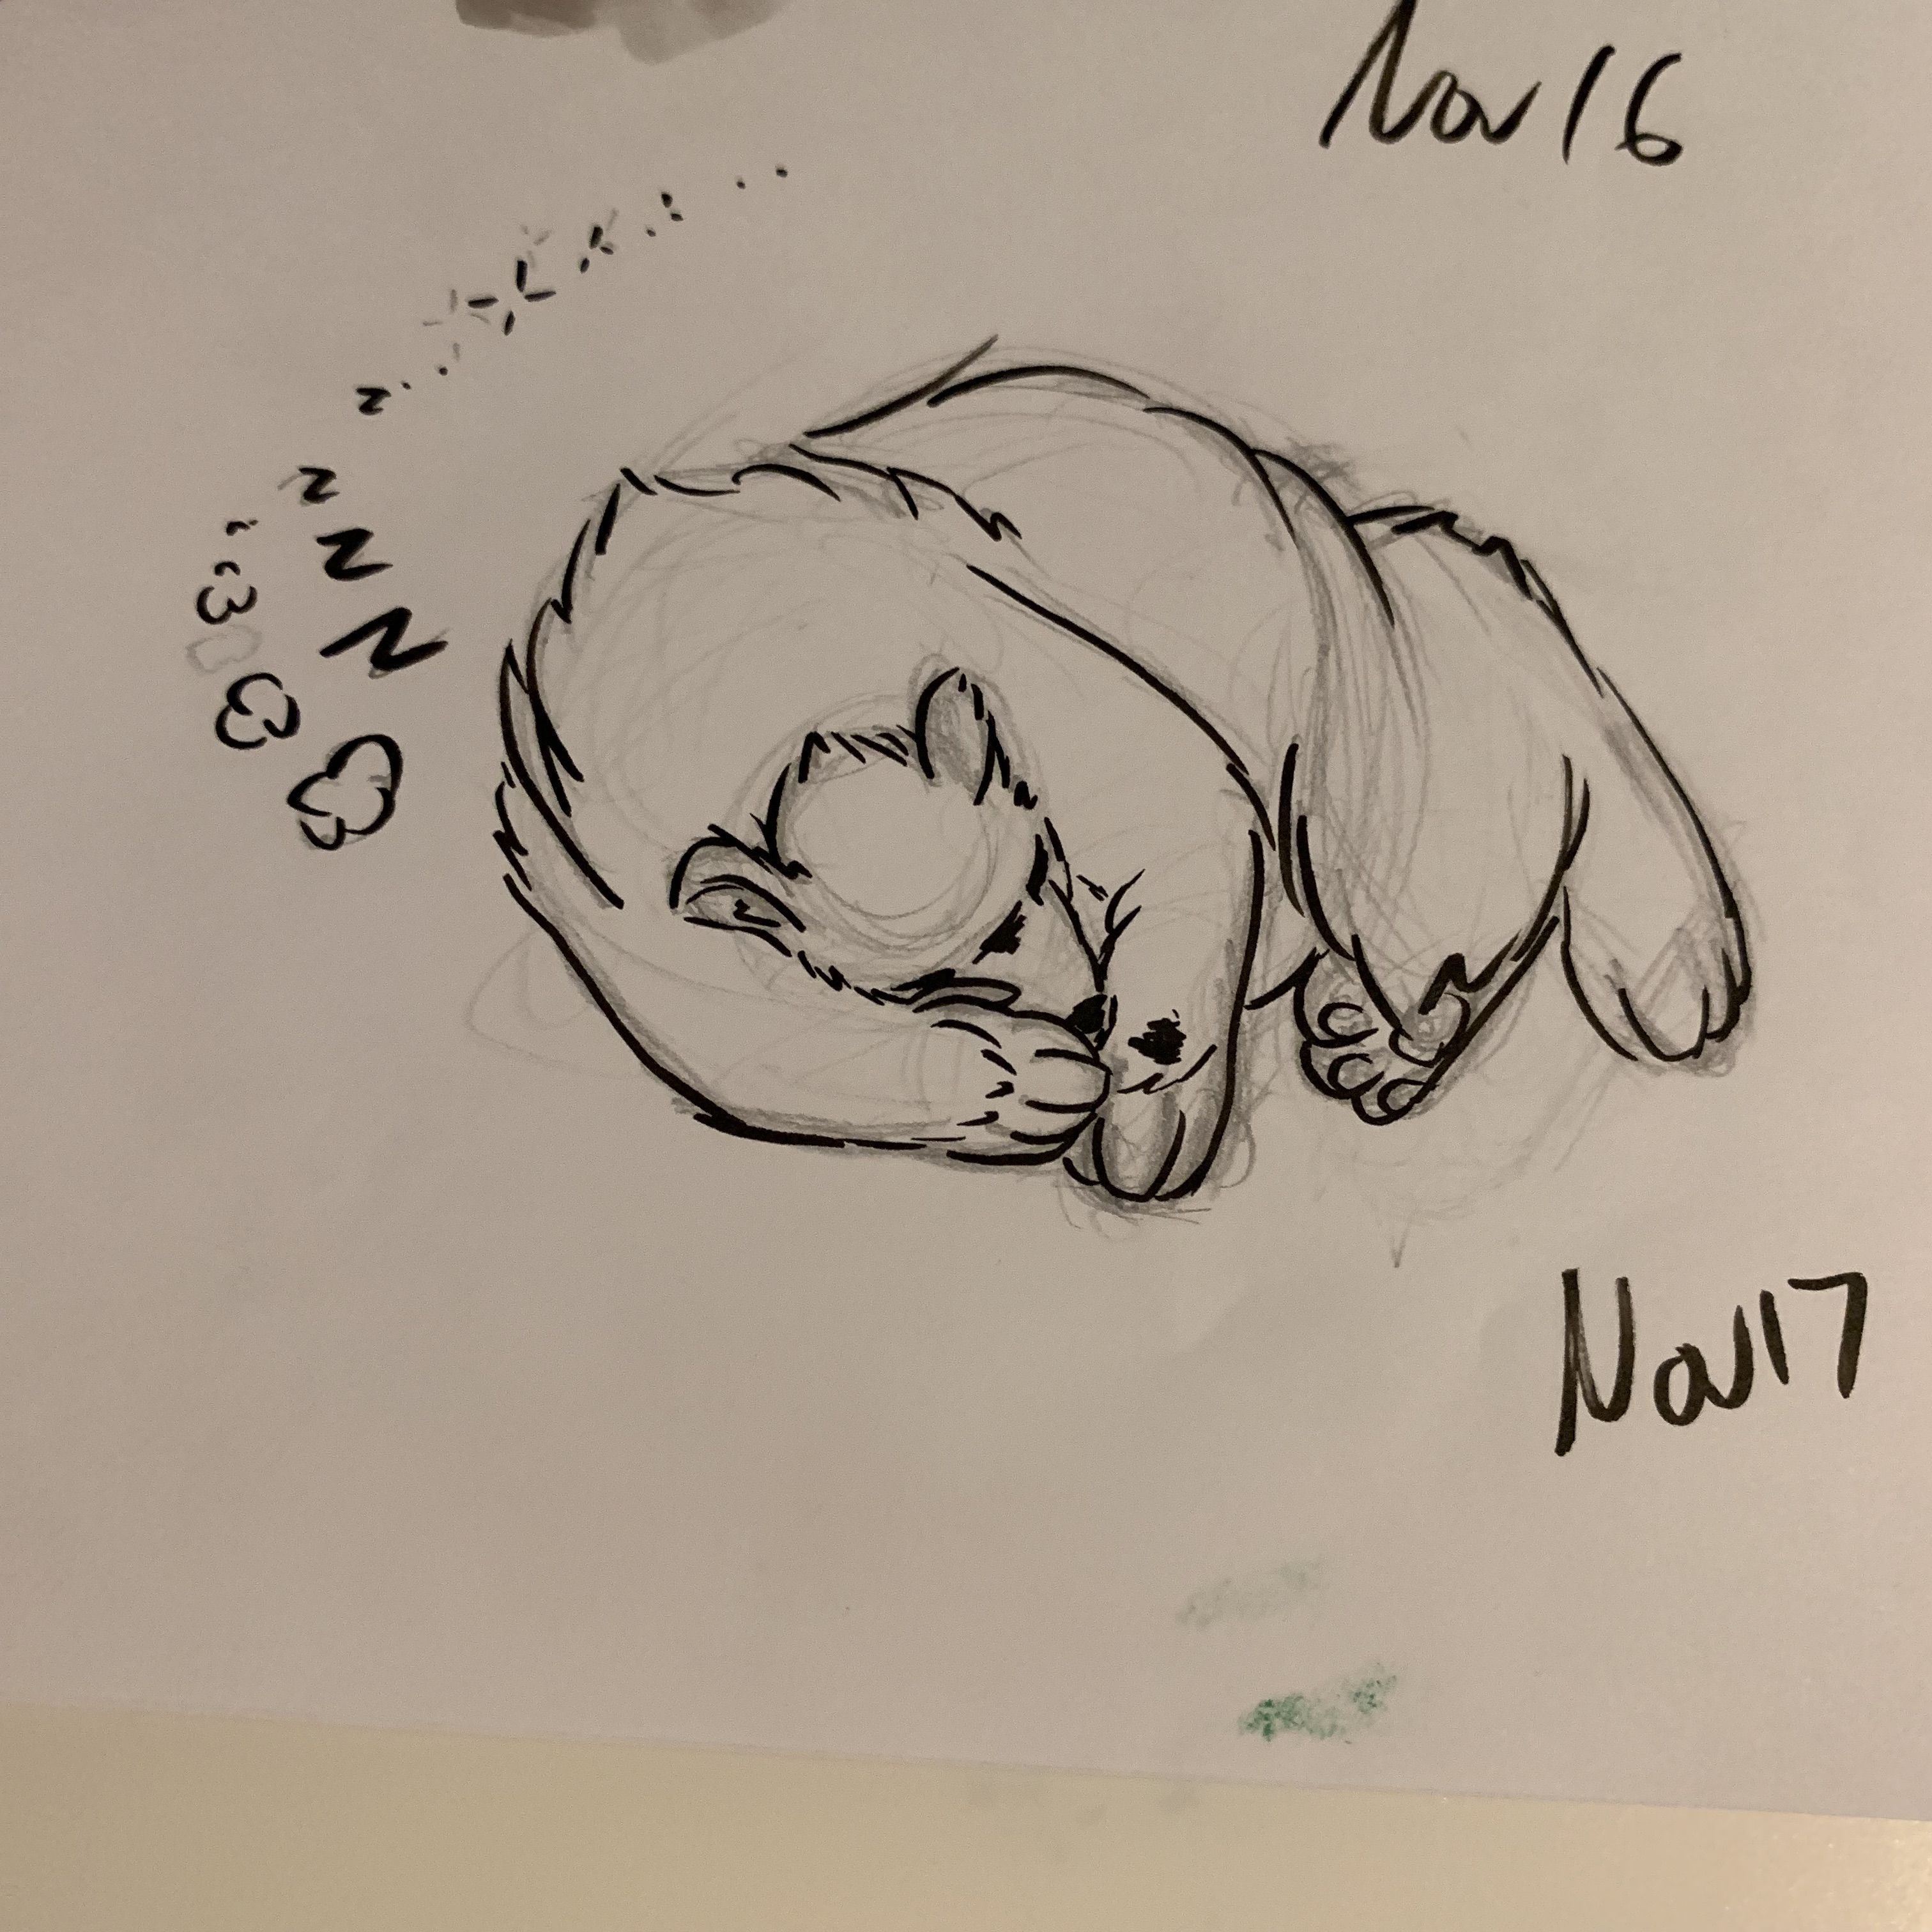 Nov 16
z
z
z
z
Nov 17